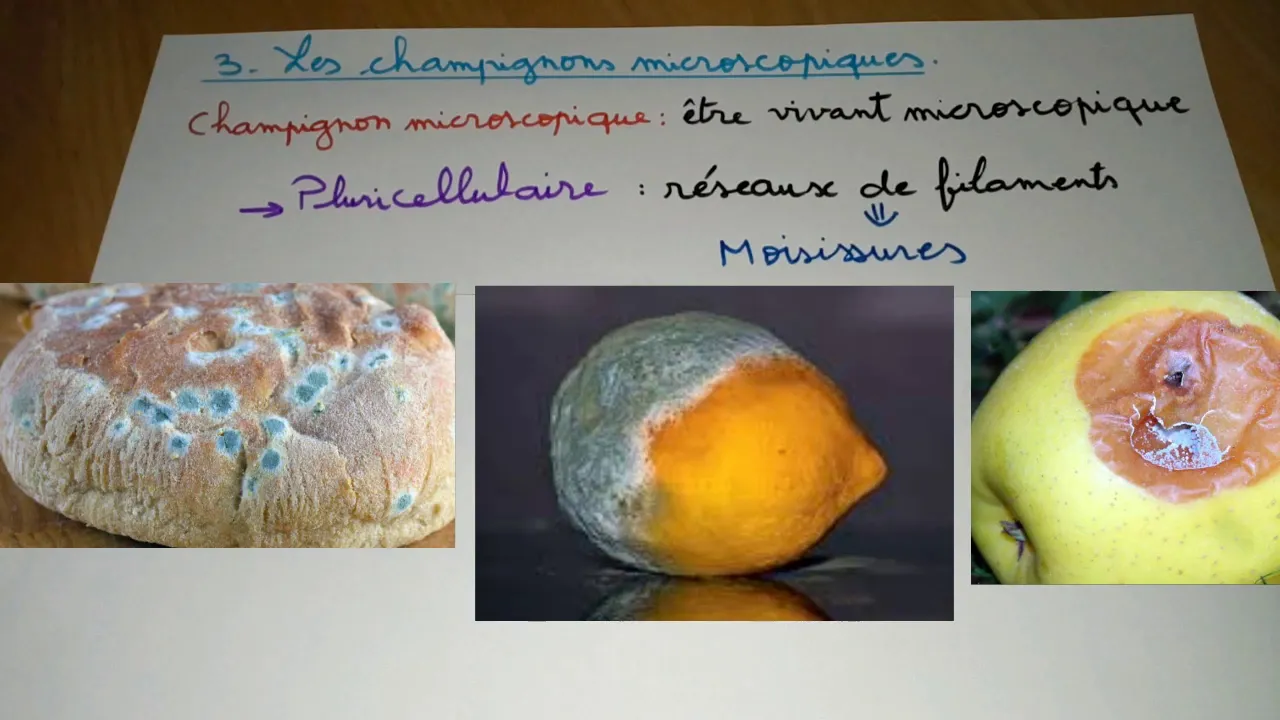 3. Les champignons microscopiques.
Champignon microscopique : être vivant microscopique
→ Pluricellulaire : réseaux de filaments
⇓
Moisissures